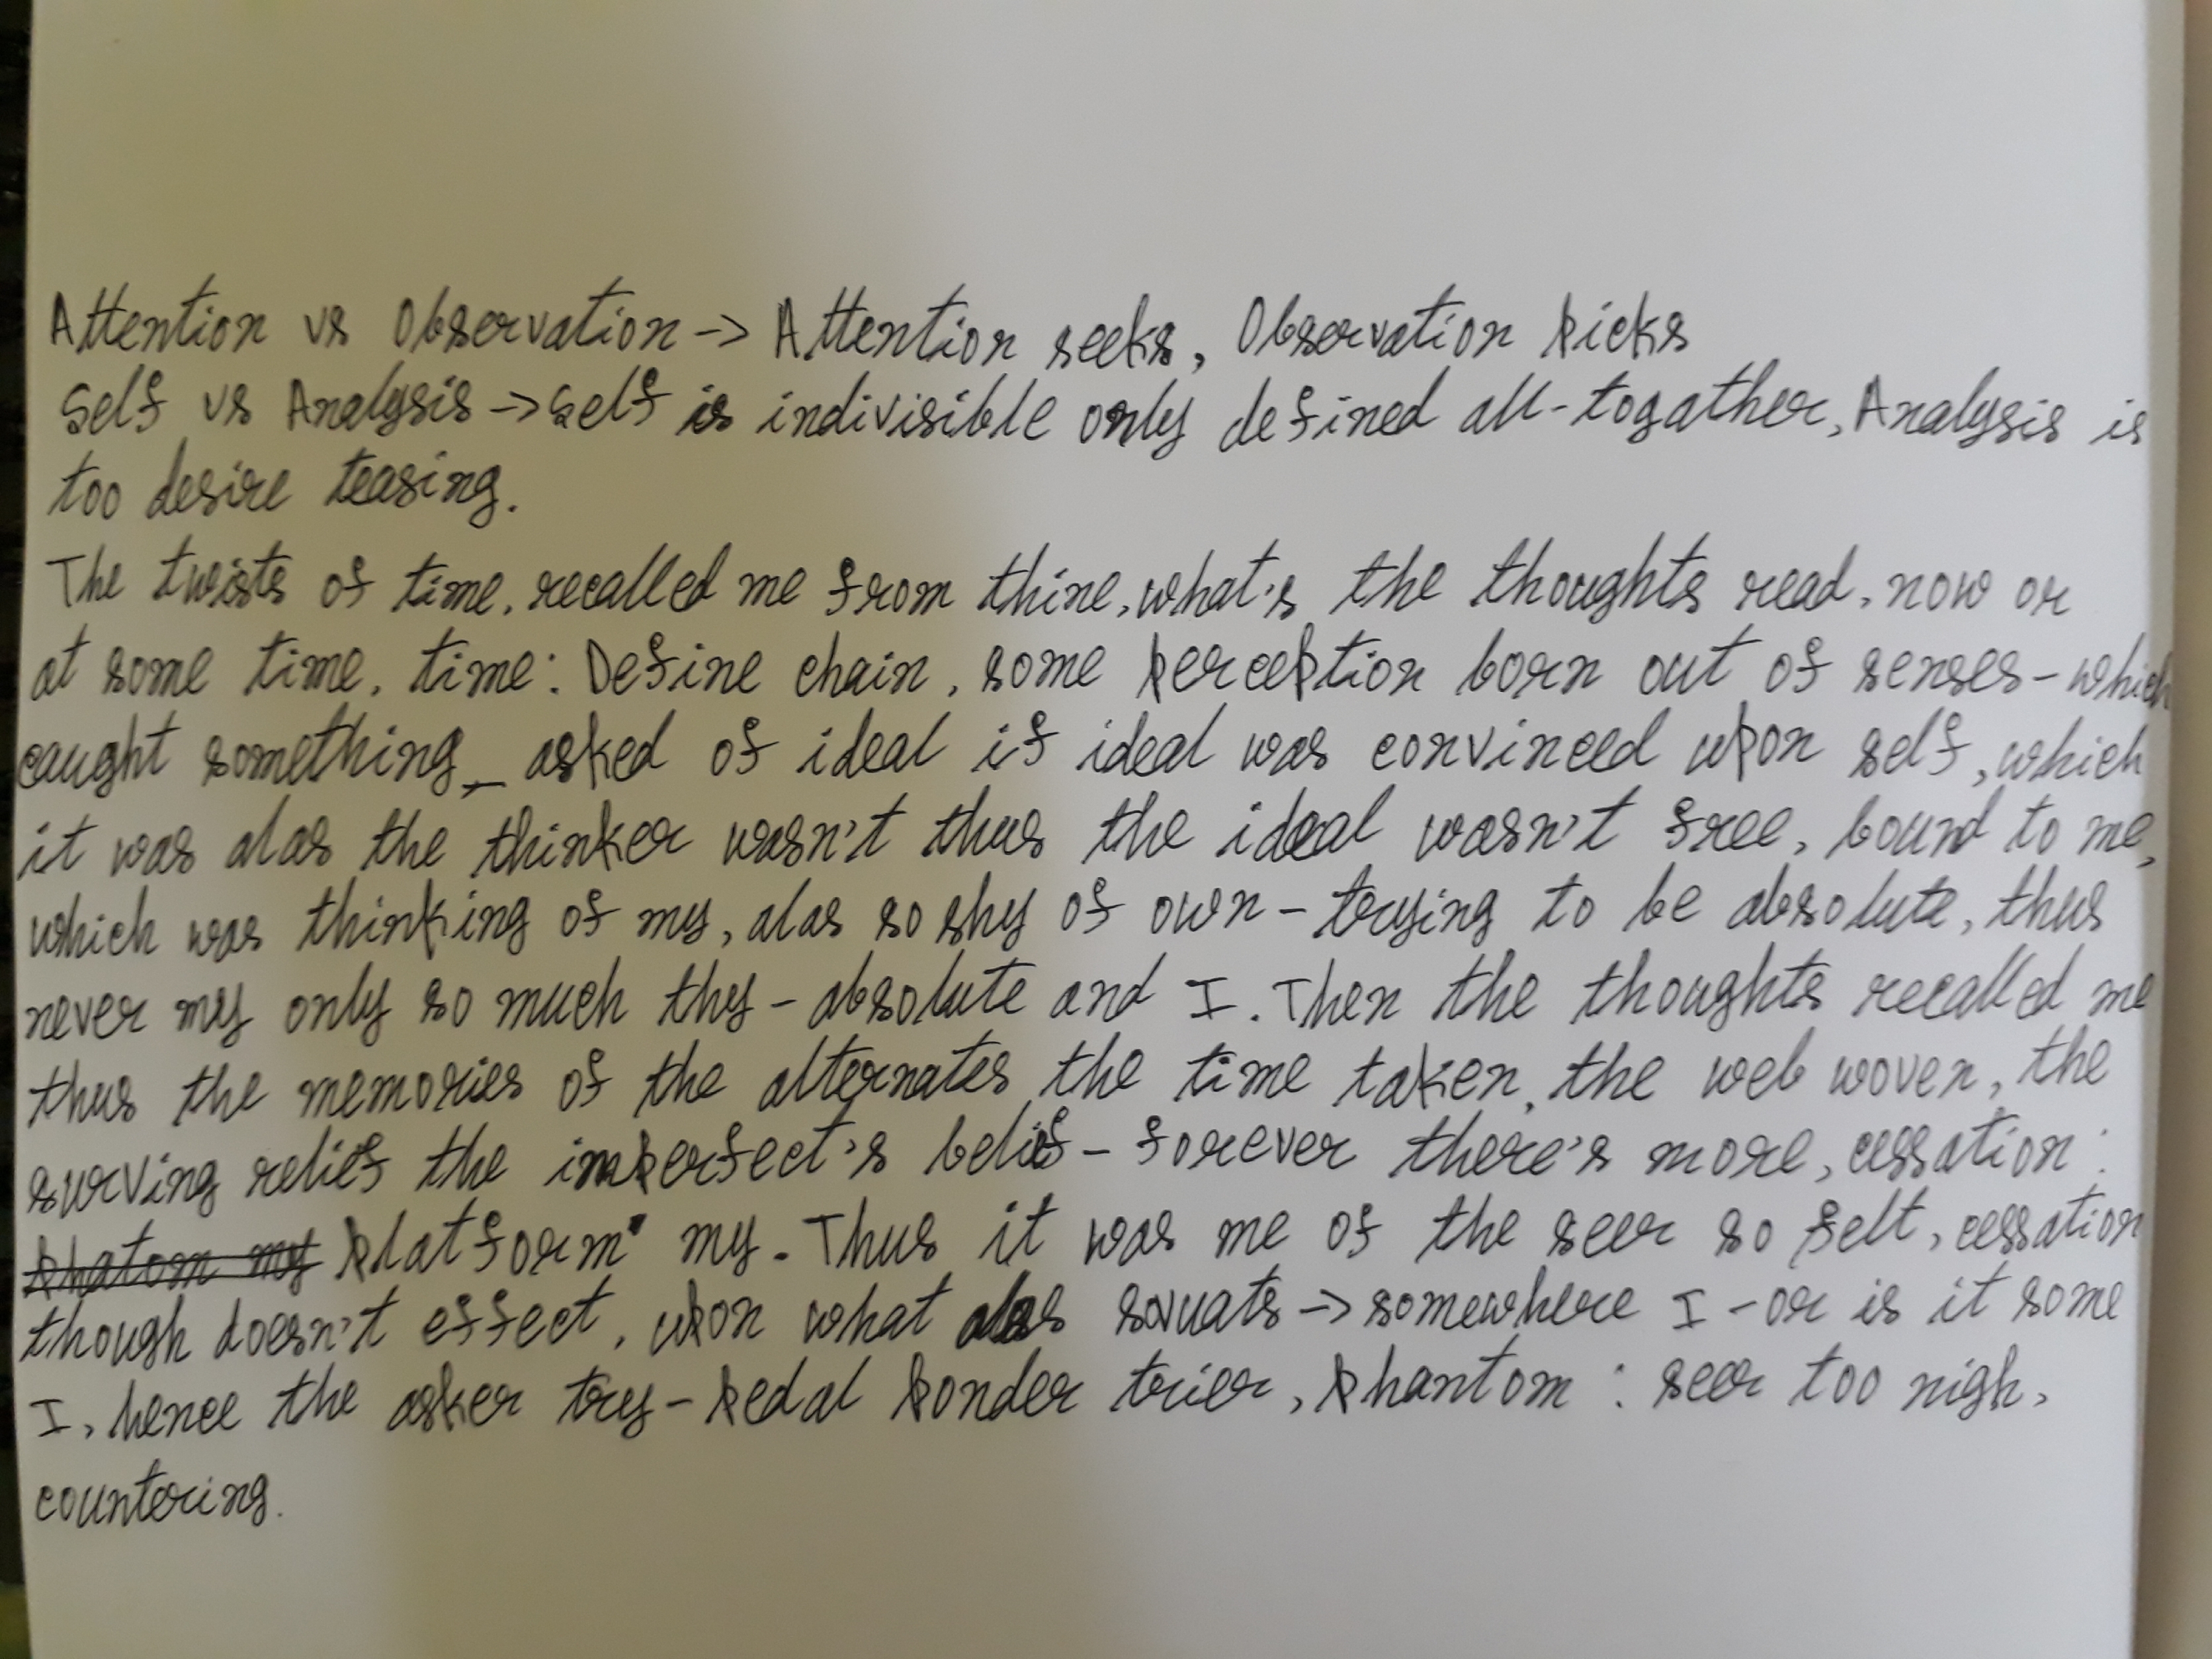 Attention vs Observation -> Attention seeks, Observation picks
Self vs Analysis -> Self is indivisible only defined all-togather, Analysis is
too desire teasing.
The twists of time, recalled me from thine, what's the thoughts read, now or
at some time, time: Define chain, some perception born out of senses - which
caught something, - asked of ideal if ideal was convinced upon self, which
it was alas the thinker wasn't thus the ideal wasn't free, bound to me,
which was thinking of my, alas so shy of own - trying to be absolute, thus
never my only so much thy - absolute and I. Then the thoughts recalled me
thus the memories of the alternates the time taken, the web woven, the
surving relief the imperfect's belief - forever there's more, cessation:
phatom my platform my. Thus it was me of the seer so felt, cessation
though doesn't effect, upon what alas -> somewhere I - or is it some
I, hence the asker try - pedal ponder trier, phantom : seer too nigh,
countering.